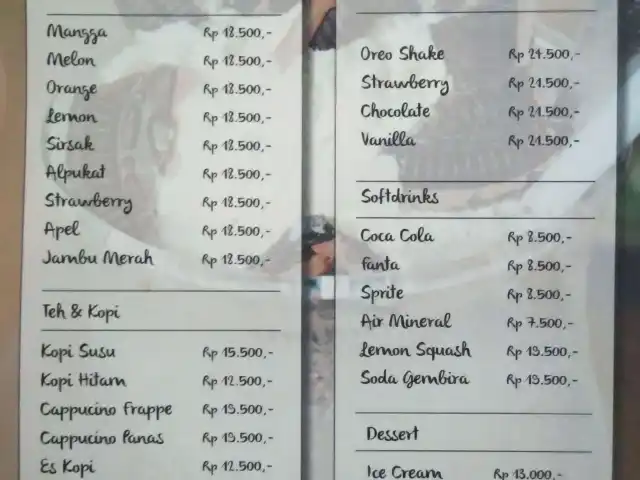 Mangga Rp 18.500,-
Melon Rp 18.500,-
Orange Rp 18.500,-
Lemon Rp 18.500,-
Sirsak Rp 18.500,-
Alpukat Rp 18.500,-
Strawberry Rp 18.500,-
Apel Rp 18.500,-
Jambu Merah Rp 18.500,-
Teh & Kopi
Kopi Susu Rp 15.500,-
Kopi Hitam Rp 12.500,-
Cappucino Frappe Rp 19.500,-
Cappucino Panas Rp 19.500,-
Es Kopi Rp 12.500,-
Oreo Shake Rp 21.500,-
Strawberry Rp 21.500,-
Chocolate Rp 21.500,-
Vanilla Rp 21.500,-
Softdrinks
Coca Cola Rp 8.500,-
Fanta Rp 8.500,-
Sprite Rp 8.500,-
Air Mineral Rp 7.500,-
Lemon Squash Rp 19.500,-
Soda Gembira Rp 19.500,-
Dessert
Ice Cream Rp 13.000,-